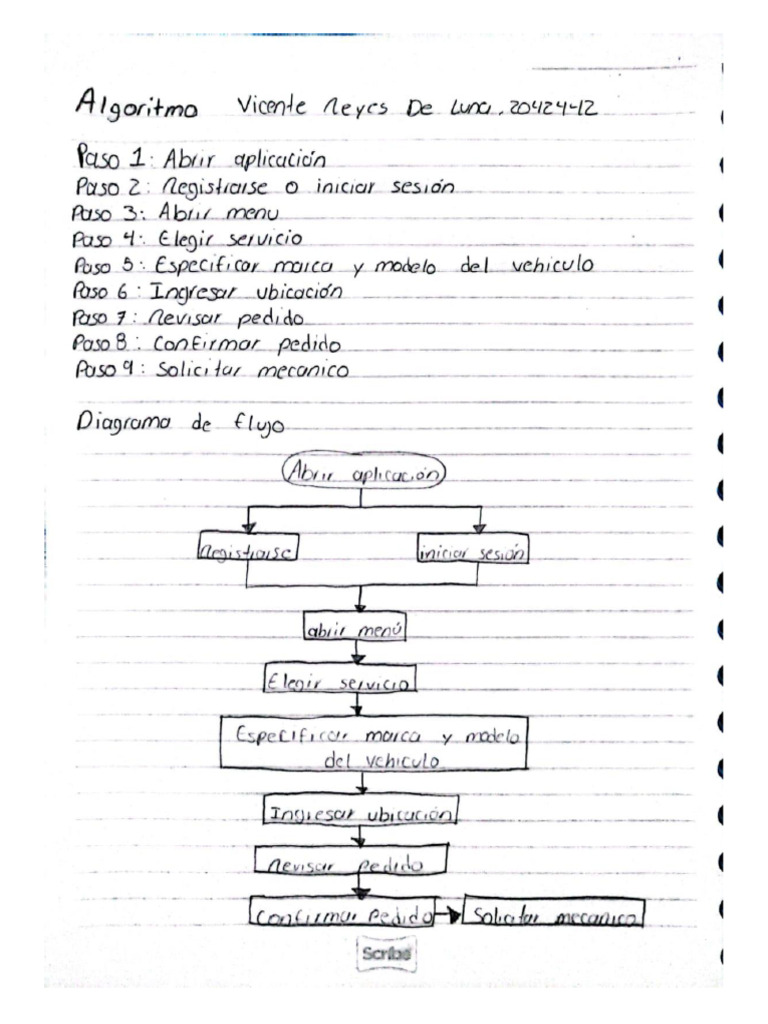 Algoritmo Vicente Reyes De Luna. 20424412
Paso 1: Abrir aplicación
Paso 2: Registrarse o iniciar sesión
Paso 3: Abrir menu
Paso 4: Elegir servicio
Paso 5: Especificar marca y modelo del vehiculo
Paso 6: Ingresar ubicación
Paso 7: Revisar pedido
Paso 8: Confirmar pedido
Paso 9: Solicitar mecanico
Diagrama de flujo
Abrir aplicación
Registrarse iniciar sesión
abrir menú
Elegir servicio
Especificar marca y modelo
del vehiculo
Ingresar ubicación
Revisar pedido
Confirmar pedido Solicitar mecanico
Scribe